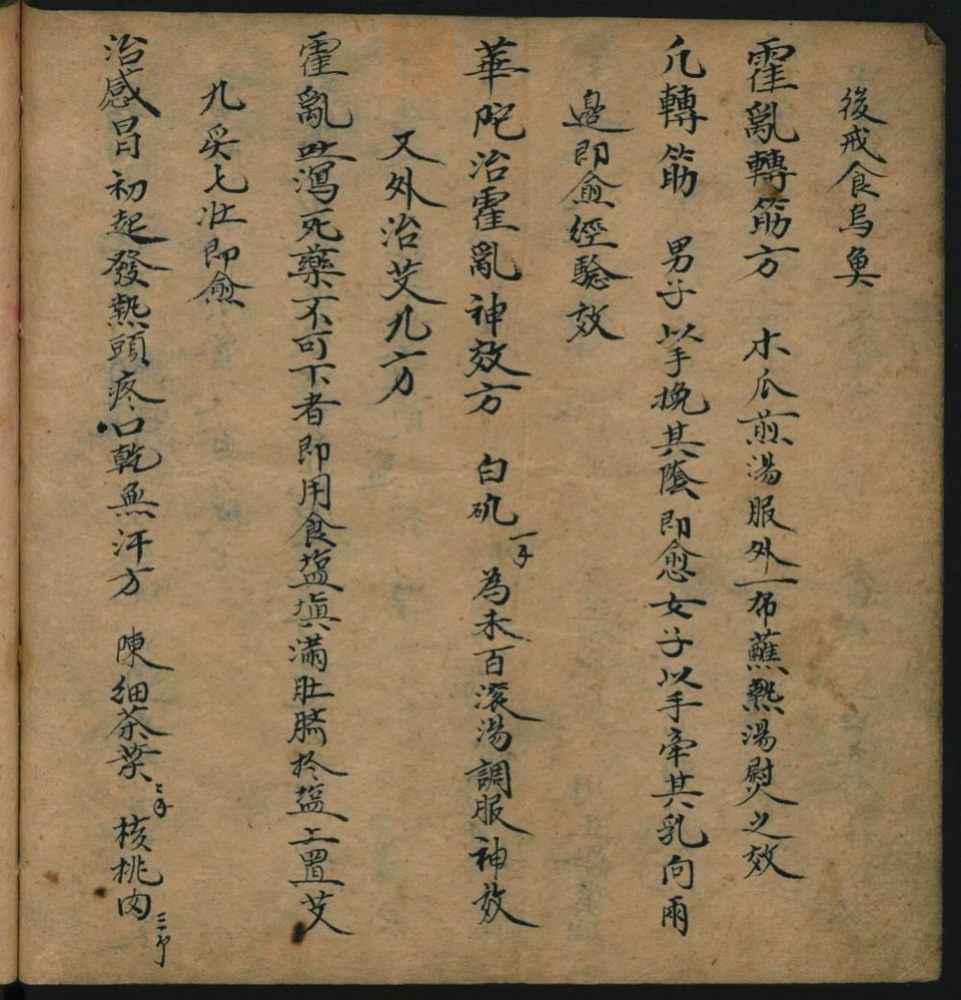 後戒食烏魚
霍亂轉筋方　木瓜煎湯服外一布蘸熱湯熨之效
凡轉筋　男子以手挽其陰即愈女子以手牽其乳向兩
邊即愈經驗效
華陀治霍亂神效方　白矾一手為末百滾湯調服神效
又外治艾丸方
霍亂吐瀉死藥不可下者即用食塩填滿肚臍於塩上置艾
丸炙七壮即愈
治感冒初起發熱頭疼口乾無汗方　陳細茶葉　核桃肉